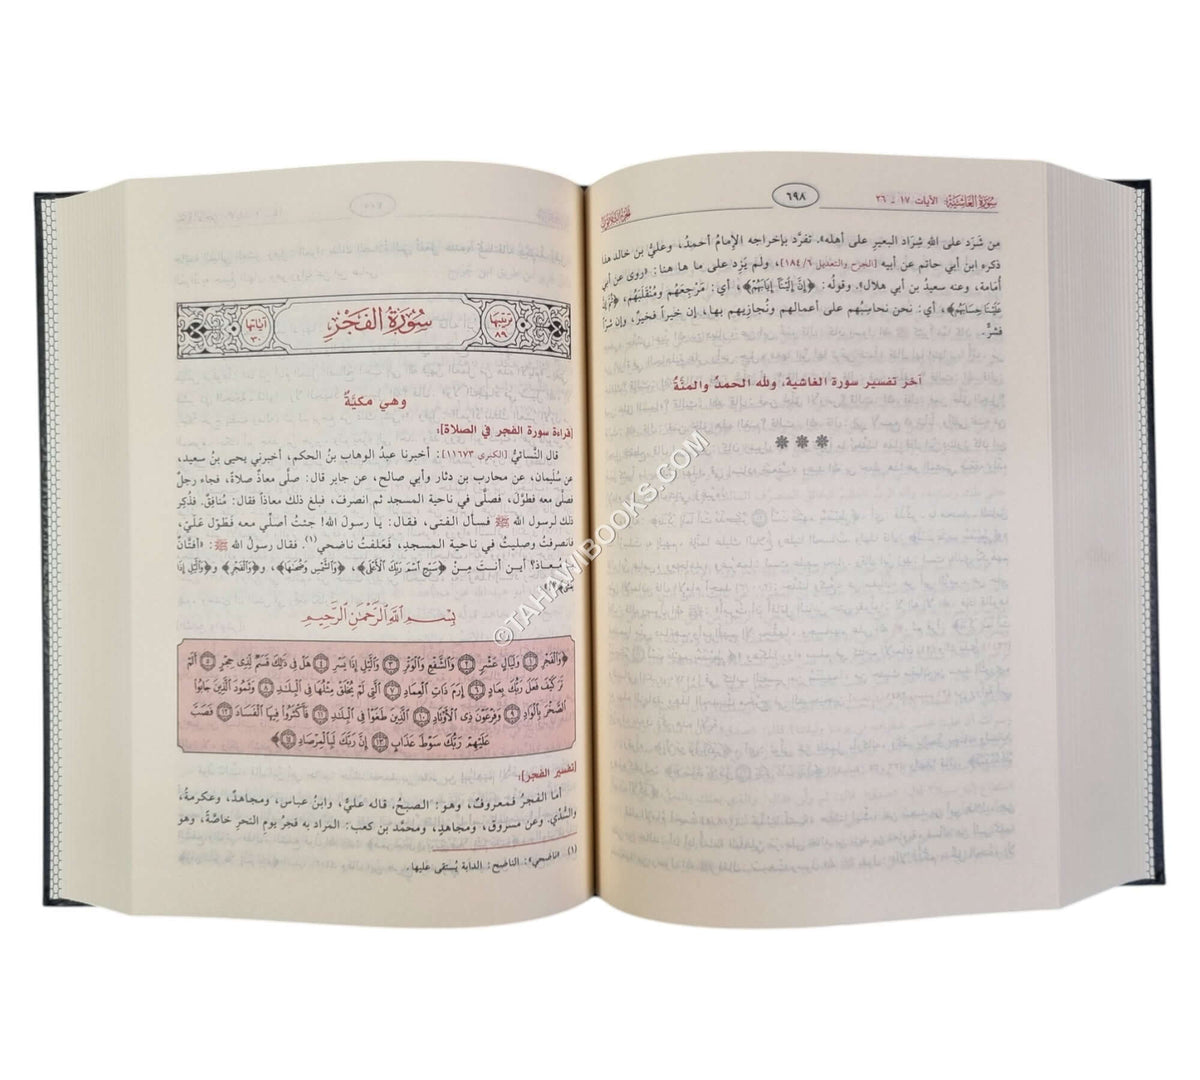 سورة الغاشية: الآيات ١٧ - ٢٦
٦٩٨
من شَرَد على اللهِ شِرَاد البعيرِ على أهله». تفرَّد بإخراجه الإمامُ أحمدُ، وعليُّ بن خالد هذا
ذكره ابنُ أبي حاتم عن أبيه [الجرح والتعديل ٦/ ١٨٤]، ولم يَزِد على ما ها هنا: «روى عن أبي
أُمامة، وعنه سعيدُ بن أبي هلال». وقولُه: ﴿إِنَّ إِلَيْنَآ إِيَابَهُمْ﴾، أي: مَرْجِعَهُم ومُنْقَلَبَهُم، ﴿ثُمَّ إِنَّ
عَلَيْنَا حِسَابَهُم﴾، أي: نحن نحاسِبُهم على أعمالهم ونُجازيهم بها، إن خيراً فخيرٌ، وإن شرّاً
فشرٌّ.
آخر تفسير سورة الغاشية، ولله الحمدُ والمنَّةُ
***
ترتيبها ٨٩ سُورَةُ الفَجْرِ آياتها ٣٠
وهي مكيَّةٌ
[قراءة سورة الفجر في الصلاة]:
قال النَّسائيُّ [الكبرى ١١٦٧٣]: أخبرنا عبدُ الوهاب بنُ الحكم، أخبرني يحيى بنُ سعيد،
عن سُليمان، عن محارب بن دثار وأبي صالح، عن جابر قال: صلَّى معاذٌ صلاةً، فجاء رجلٌ
فصلَّى معه فطوَّل، فصلَّى في ناحية المسجد ثم انصرفَ، فبلغ ذلك معاذاً فقال: مُنافِقٌ. فذُكِر
ذلك لرسول الله ﷺ فسأل الفتى، فقال: يا رسولَ الله! جئتُ أصلِّي معه فَطوَّل عَلَيَّ،
فانصرفتُ وصليتُ في ناحية المسجدِ، فَعَلفتُ ناضحي(١). فقال رسولُ الله ﷺ: «أفتَّانٌ
يا معاذ؟ أين أنتَ مِنْ ﴿سَبِّحِ اسْمَ رَبِّكَ الْأَعْلَى﴾، ﴿وَالشَّمْسِ وَضُحَاهَا﴾، و﴿وَالْفَجْرِ﴾ و﴿وَاللَّيْلِ إِذَا
يَغْشَى﴾»
بِسْمِ اللَّهِ الرَّحْمَٰنِ الرَّحِيمِ
﴿وَالْفَجْرِ ١ وَلَيَالٍ عَشْرٍ ٢ وَالشَّفْعِ وَالْوَتْرِ ٣ وَاللَّيْلِ إِذَا يَسْرِ ٤ هَلْ فِي ذَٰلِكَ قَسَمٌ لِّذِي حِجْرٍ ٥ أَلَمْ
تَرَ كَيْفَ فَعَلَ رَبُّكَ بِعَادٍ ٦ إِرَمَ ذَاتِ الْعِمَادِ ٧ الَّتِي لَمْ يُخْلَقْ مِثْلُهَا فِي الْبِلَادِ ٨ وَثَمُودَ الَّذِينَ جَابُوا
الصَّخْرَ بِالْوَادِ ٩ وَفِرْعَوْنَ ذِي الْأَوْتَادِ ١٠ الَّذِينَ طَغَوْا فِي الْبِلَادِ ١١ فَأَكْثَرُوا فِيهَا الْفَسَادَ ١٢ فَصَبَّ
عَلَيْهِمْ رَبُّكَ سَوْطَ عَذَابٍ ١٣ إِنَّ رَبَّكَ لَبِالْمِرْصَادِ ١٤﴾
[تفسير الفجر]:
أما الفَجْرُ فمعروفٌ، وهو: الصبحُ. قاله عليٌّ، وابنُ عباس، ومجاهدٌ، وعكرمةُ،
والسُّدِّيُّ. وعن مسروقٍ، ومجاهدٍ، ومحمَّد بن كعب: المراد به فجرُ يوم النحرِ خاصَّةً، وهو
(١) «ناضحي»: الناضح: الدابة يُستقى عليها.
©TAHAWIBOOKS.COM